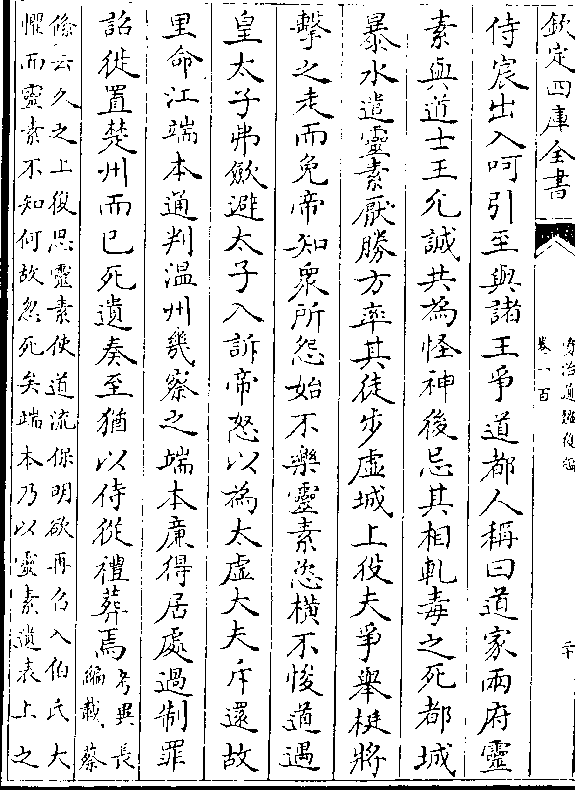 欽定四庫全書
資治通鑑後編
卷一百
二十
侍宸出入呵引至與諸王爭道都人稱曰道家兩府靈
素與道士王允誠共為怪神後忌其相軋毒之死都城
暴水遣靈素厭勝方率其徒步虛城上役夫爭舉梃將
擊之走而免帝知衆所怨始不樂靈素恣橫不悛道遇
皇太子弗斂避太子入訴帝怒以為太虛大夫斥還故
里命江端本通判温州幾察之端本廉得居處過制罪
詔徙置楚州而已死遺奏至猶以侍從禮葬焉
考異長
編載蔡
絛云久之上復思靈素使道流保明欲再召入伯氏大
懼而靈素不知何故忽死矣端本乃以靈素遺表上之